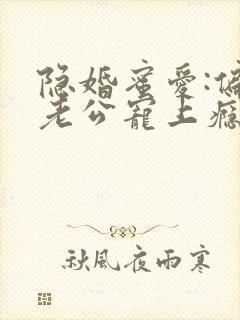 隐婚蜜爱:偏
老公宠上瘾
秋風夜雨寒